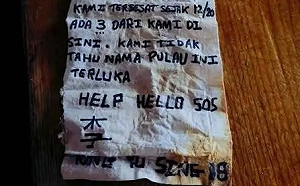 KAMI TERSESAT SEJAK 12/20
ADA 3 DARI KAMI DI
SINI. KAMI TIDAK
TAHU NAMA PULAU INI
TERLUKA
HELP HELLO SOS
李